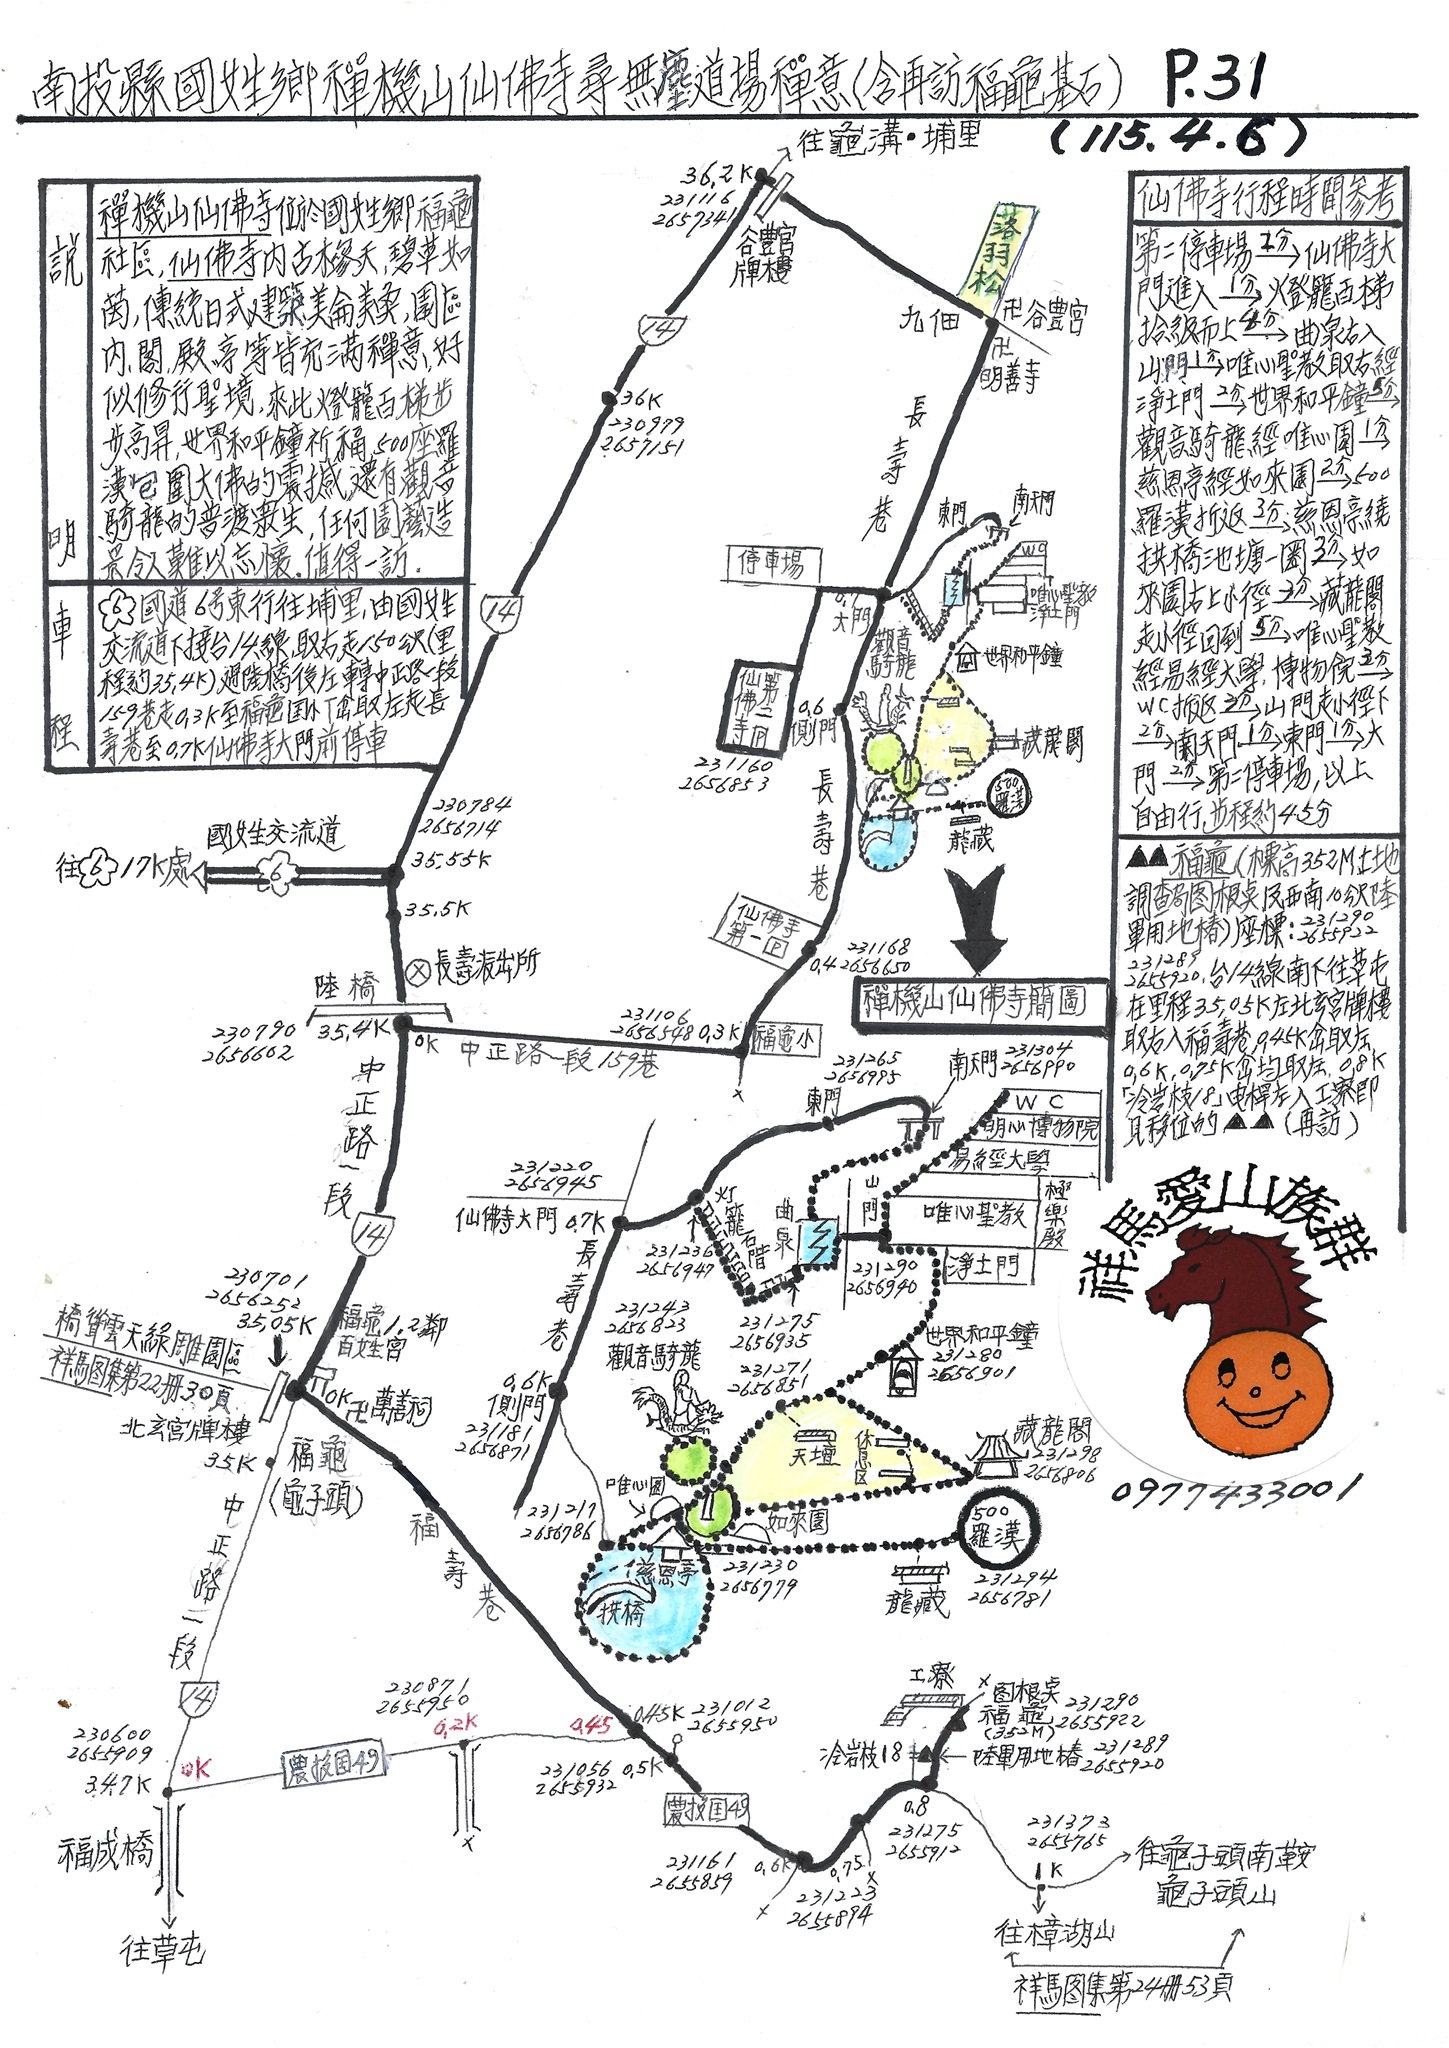 南投縣國姓鄉禪機山仙佛寺尋無塵道場禪意(含再訪福龜基石)
P.31
(115.4.6)
說明
禪機山仙佛寺位於國姓鄉福龜
社區,仙佛寺內古木參天,碧草如
茵,傳統日式建築美侖美奐,園區
內,閣,殿,亭等皆充滿禪意,好
似修行聖境,來此燈籠百梯步
步高昇,世界和平鐘祈福,500座羅
漢包圍大佛的震撼,還有觀音
騎龍的普渡眾生,任何園藝造
景令人難以忘懷.值得一訪.
車程
6國道6号東行往埔里,由國姓
交流道下接台14線,取右走150公尺(里
程約35,4K)過陸橋後左轉中正路一段
159巷走0,3K至福龜国小丁岔取左走長
壽巷至0,7K仙佛寺大門前停車
仙佛寺行程時間參考
第二停車場2分→仙佛寺大
門進入1分→燈籠百梯
拾級而上4分→曲泉右入
山門1分→唯心聖教取右經
淨土門2分→世界和平鐘5分→
觀音騎龍經唯心園1分→
慈恩亭經如來園2分→500
羅漢折返3分→慈恩亭繞
拱橋池塘一圈3分→如
來園右上小徑3分→藏龍閣
走小徑回到5分→唯心聖教
經易經大學,博物院3分→
WC折返2分→山門走小徑下
2分→南天門1分→東門1分→大
門2分→第二停車場,以上
自由行,步程約45分
▲▲福龜(標高352M土地
調查局图根桌及西南10公尺陸
軍用地樁)座標:231290
2655922
231289
2655920.台14線南下往草屯
在里程35,05K左北玄宮牌樓
取右入福壽巷,0,45K岔取左
0,6K,0,75K岔均取左,0,8K
「冷岩枝18」电桿左入工寮即
見移位的▲▲(再訪)
往龜溝·埔里
36,2K
231116
2657341
谷豐宮
牌樓
落羽松
九佃
卍谷豐宮
卍
明善寺
14
36K
230979
2657151
長壽巷
東門
南天門
WC
停車場
0,7
大門
唯心聖教
淨土門
觀音
騎龍
世界和平鐘
仙佛寺
第二P
0,6
側門
231160
2656853
藏龍閣
500
羅漢
龍藏
長壽巷
14
230784
2656714
35.55K
國姓交流道
往6 17K處
6
35.5K
長壽派出所
陸橋
35,4K
0K
230790
2656602
仙佛寺
第一P
0,4
231168
2656650
231106
2656548
0,3K
福龜小
中正路一段159巷
禪機山仙佛寺簡圖
中正路一段
14
231265
2656995
東門
南天門
231304
2656990
WC
明心博物院
易經大學
唯心聖教
極樂殿
淨土門
山門
曲泉
灯籠石階
231220
2656945
仙佛寺大門 0,7K
231236
2656947
231290
2656940
231275
2656935
231243
2656823
觀音騎龍
231271
2656851
世界和平鐘
231280
2656901
長壽巷
0,6K
側門
231181
2656871
天壇
休息区
藏龍閣
231298
2656806
唯心園
如來園
500
羅漢
231294
2656781
231217
2656786
慈恩亭
231230
2656779
龍藏
拱橋
230701
2656252
35,05K
福龜1.2鄰
百姓宮
橋聳雲天綠雕園區
祥馬图集第22册30頁
北玄宮牌樓
0K
卍萬善祠
35K
福龜
(龜子頭)
中正路二段
福壽巷
14
230600
2655909
34.7K
0K
農投国49
230871
2655950
0,2K
0,45
0,45K
231012
2655950
231056
2655932
0,5K
農投国49
231161
2655859
0,6K
0,75
231223
2655894
0,8
231275
2655912
工寮
图根桌
福龜
(352M)
231290
2655922
冷岩枝18
陸軍用地樁
231289
2655920
231373
2655765
1K
往龜子頭南鞍
龜子頭山
往樟湖山
祥馬图集第24册53頁
福成橋
往草屯
祥馬愛山族群
0977433001